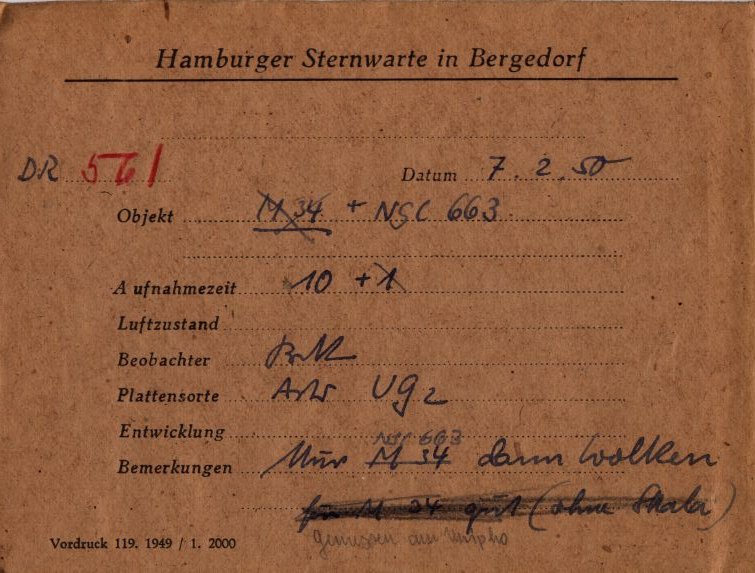 Hamburger Sternwarte in Bergedorf
DR 561
Datum 7.2.50
Objekt M 34 + NGC 663
Aufnahmezeit 10 + 1
Luftzustand
Beobachter
Plattensorte UG2
Entwicklung
NGC 663
Bemerkungen Nur M 34 dann Wolken
für M 34 gut (ohne Skala)
gemessen am
Vordruck 119. 1949 / 1. 2000